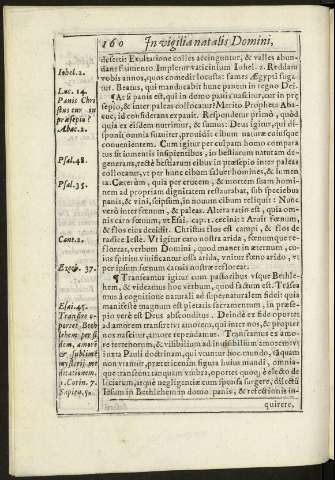 160
In vigilia natalis Domini,
deserti: Exultatione colles accingentur, & valles abun-
dant frumento. Impletur vaticinium Iohel. 2. Reddam
vobis annos, quos comedit locusta: fames Ægypti fuga-
tur. Beatus, qui manducabit hunc panem in regno Dei.
¶ At si panis est, qui in domo panis nascitur, cur in præ
sepio, & inter paleas collocatur? Merito Propheta Aba-
cuc, id considerans expauit. Respondetur primò, quòd
quia ex eisdem nutrimur, & sumus: Deus igitur, qui di-
sponit omnia suauiter, prouidit cibum naturæ cuiusque
conuenientem. Cum igitur per culpam homo compara-
tus sit iumentis insipientibus, in bestiarum naturam de-
generans, rectè bestiarum cibus in præsepio inter paleas
collocatur, vt per hunc cibum saluet homines, & iumen-
ta. Cæterùm, quia per crucem, & mortem suam homi-
nem ad propriam dignitatem restaurabat, sub speciebus
panis, & vini, seipsum, in nouum cibum reliquit: Nunc
verò inter fœnum, & paleas. Altera ratio est, quia om-
nis caro fœnum, vt Esai. cap. 1. cecinit: Aruit fœnum,
& flos eius decidit. Christus flos est campi, & flos de
radice Iesse. Vt igitur caro nostra arida, fœnumque re-
floreat, verbum Domini, quod manet in æternum, co-
ius spiritus viuificat ossa arida, vnitur fœno arido, vt
per ipsum fœnum carnis nostræ refloreat.
¶ Transeamus igitur cum pastoribus vsque Bethle-
hem, & videamus hoc verbum, quod factum est. Trāsea
mus à cognitione naturali ad supernaturalem fidei: quia
manifestè magnum est pietatis sacramentum, in præse-
pio verè est Deus absconditus. Deinde ex fide oportet
ad amorem transire: vt amoris, qui inter nos, & prophet
nos nascitur, amore rependamus. Transeamus ex amo-
re terrenorum, & visibilium ad inuisibilium amorem: vt
iuxta Pauli doctrinam, qui vtuntur hoc mundo, tāquam
non vtantur, præterit enim figura huius mundi, omnia-
que transeunt tanquam vmbra, oportet quoq; è lecto de
liciarum, atque negligentiæ cum sponsa surgere, dilectū
Iesum in Bethlehem in domo panis, & refectionis in-
quirere,
Iohel. 2.
Luc. 14.
Panis Chri
stus cur in
præsepio?
Abac. 2.
Psal. 48.
Psal. 35.
Cant. 2.
Ezech. 37.
Esai. 45.
Transire o-
portet Beth
lehem per fi
dem, amorē
& sublimē
mysterij me
ditationem.
1. Corin. 7.
Sapien. 5.